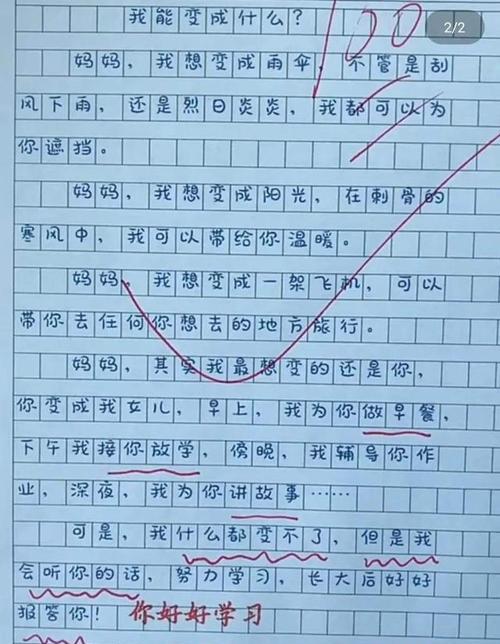 我能变成什么？
100
2/2
妈妈，我想变成雨伞，不管是刮
风下雨，还是烈日炎炎，我都可以为
你遮挡。
妈妈，我想变成阳光，在刺骨的
寒风中，我可以带给你温暖。
妈妈，我想变成一架飞机，可以
带你去任何你想去的地方旅行。
妈妈，其实我最想变的还是你，
你变成我女儿，早上，我为你做早餐，
下午我接你放学，傍晚，我辅导你作
业，深夜，我为你讲故事……
可是，我什么都变不了，但是我
会听你的话，努力学习，长大后好好
报答你！你好好学习